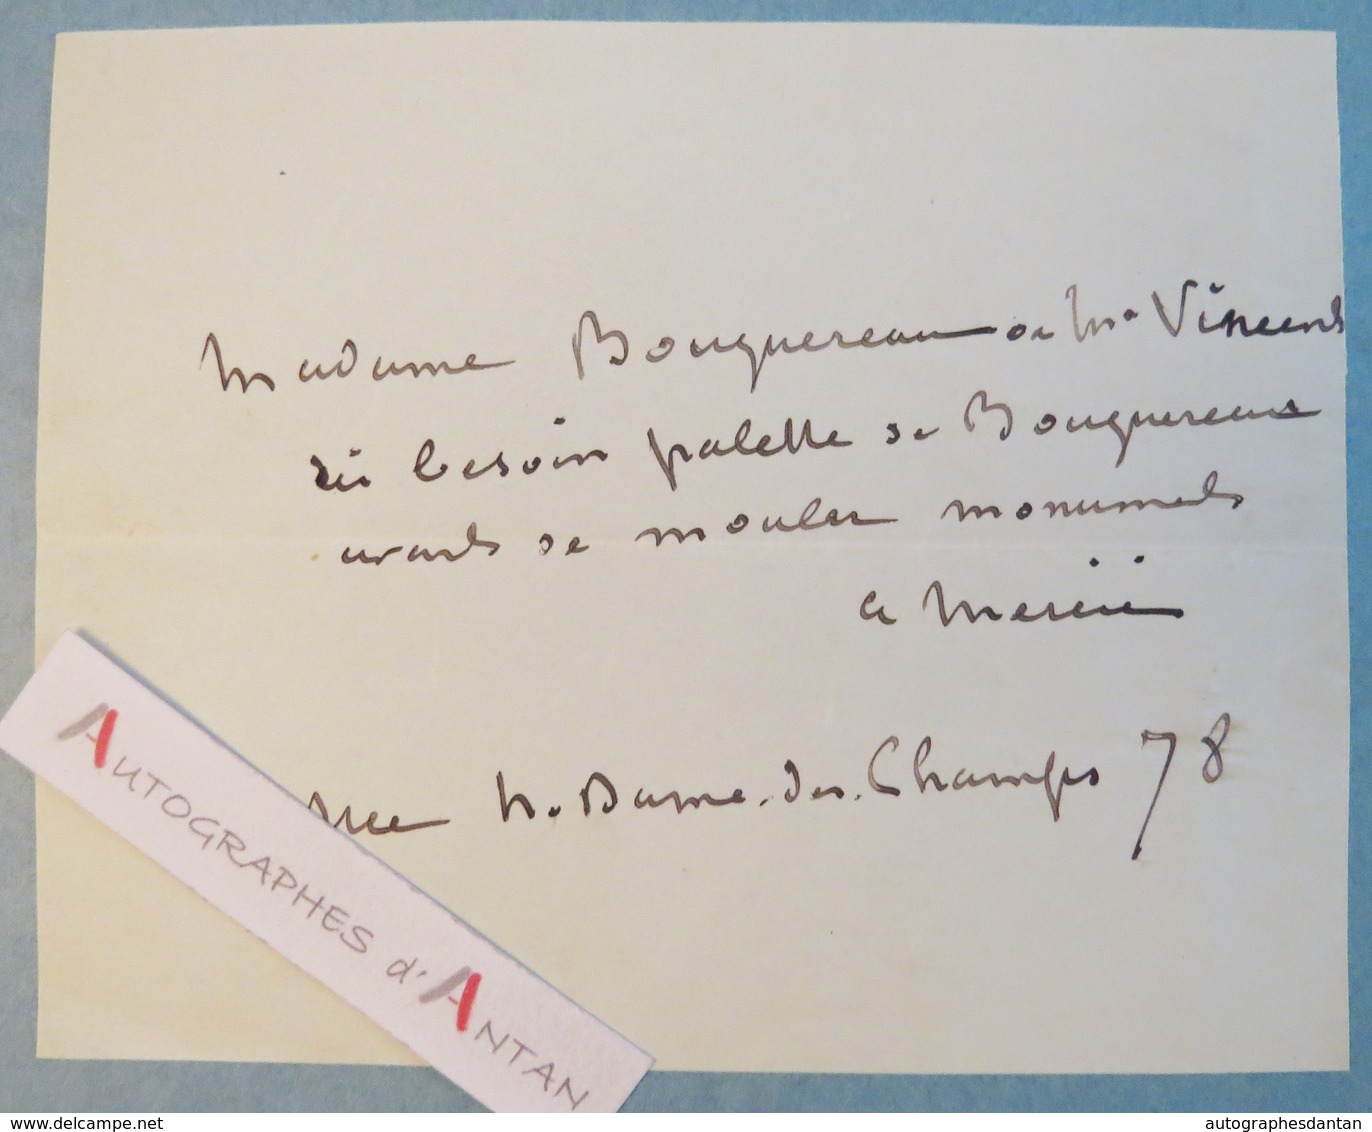 Madame Bouguereau ou Mr Vincent
si besoin palette de Bouguereau
avant de mouler monument
a Mercié
rue N. Dame. des. Champs 78
AUTOGRAPHES d'ANTAN
www.delcampe.net
autographesdantan